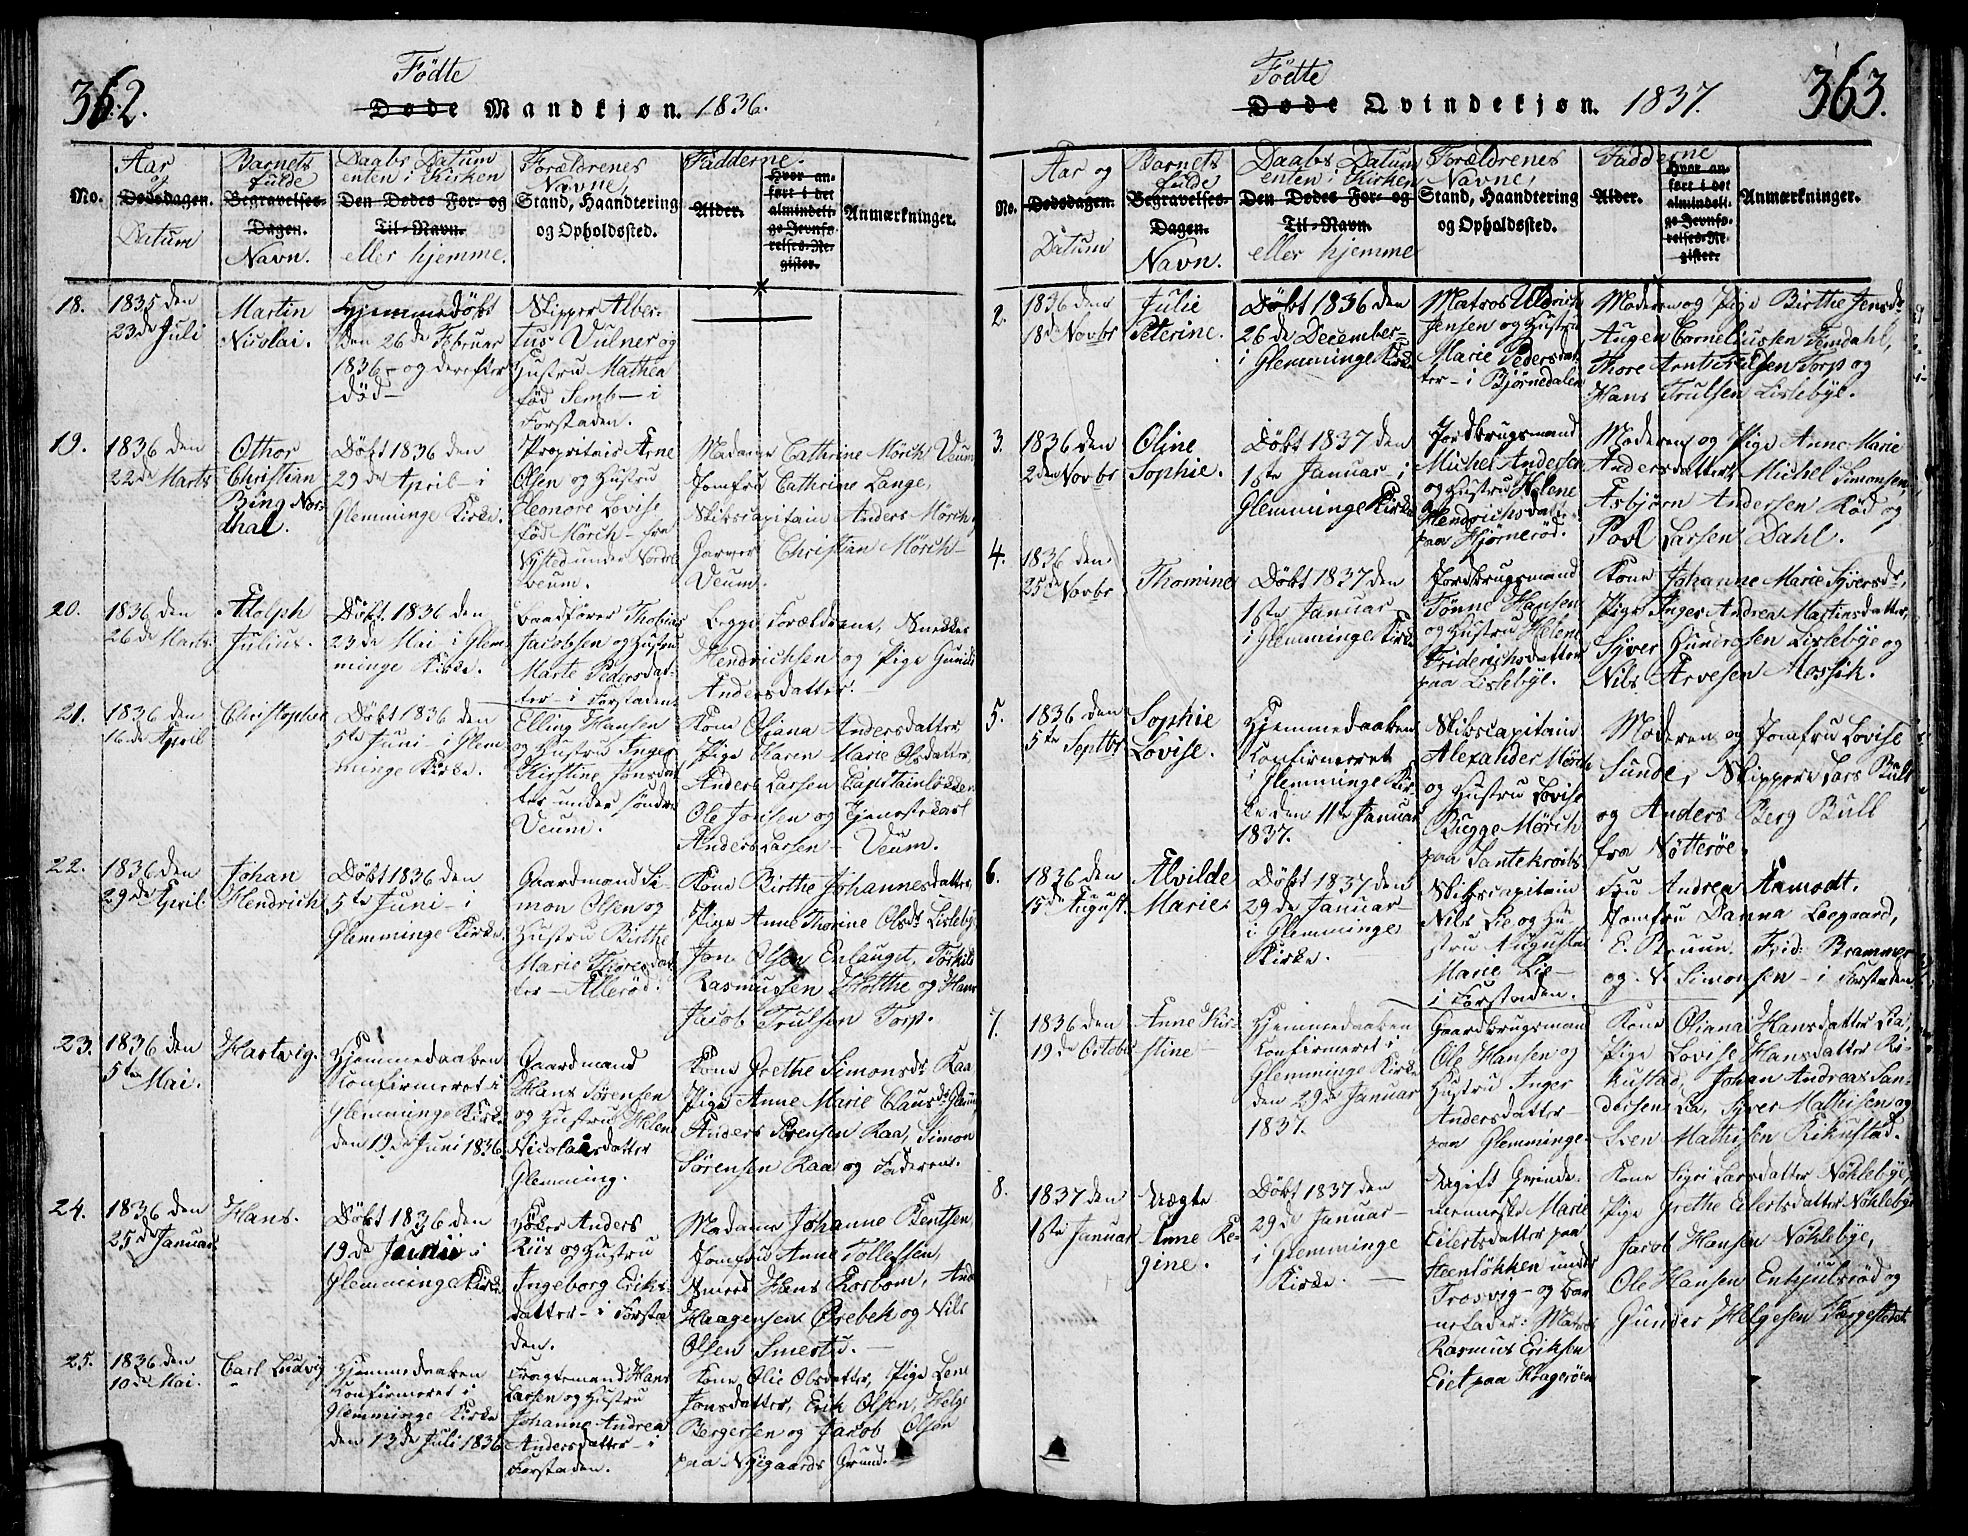 362.
Fødte
Døde Mandkjøn. 1836.
No.
Aar og Dødsdagen. Datum
Barnets fulde Begravelses-Dagen. Navn.
Daabs Datum enten i Kirken Den Dødes For- og Til-Navn. eller hjemme.
Forældrenes Navne, Stand, Haandtering og Opholdssted.
Fadderne. Alder.
Hvor anført i det almindelige Jevnførelses-Register.
Anmærkninger.
18.
1835 den
23de Juli
Martin
Nicolai.
Hjemmedøbt
den 26de Februar
1836 - og derefter
død -
Skipper Alber-
tus Vulner og
Hustru Mathea
fød Semb - i
Forstaden.
19.
1836 den
22de Marts
Othor
Christian
Bing Nor-
dhal.
Døbt 1836 den
29de April - i
Glemminge Kirke.
Propritair Arne
Olsen og Hustru
Eleonore Lovise
fød Mörch - fra
Nysted under Nordre
Veum.
Madame Cathrine Mörch Veum
Jomfru Cathrine Lange,
Skibscapitain Anders Mörch,
Farver Christian Mörch -
Veum.
20.
1836 den
26de Marts
Adolph
Julius.
Døbt 1836 den
23de Mai i Glem-
minge Kirke.
Baadfører Thobias
Jacobsen og Hustru
Marte Pedersdat-
ter - i Forstaden
Begge Forældrene, Snekker
Hendrichsen og Pige Gunild
Andersdatter.
21.
1836 den
16de April
Christopher
Døbt 1836 den
5te Juni - i Glem
minge Kirke.
Elling Hansen
og Hustru Inger
Kirstine Jonsdat
ter under søndre
Veum.
Kone Oliana Andersdatter,
Pige Karen Marie Olsdatter,
Anders Larsen Capitainløkken
Ole Jonsen og Tjenestekarl
Anders Larsen - Veum.
22.
1836 den
29de April.
Johan
Hendrich
Døbt 1836 den
5te Juni - i
Glemminge Kirke.
Gaardmand Si-
mon Olsen og
Hustru Birthe
Marie Thoresdat
ter - Allerød.
Kone Birthe Johannesdatter,
Pige Anne Thorine Olsdr Lislebye
Jon Olsen Enlauget, Torkild
Rasmussen Holthe og Hans
Jacob Trulsen Torp.
23.
1836 den
5te Mai.
Hartvig.
Hjemmedaaben
Konfirmeret i
Glemminge Kirke
den 19de Juni 1836
Gaardmand
Hans Sørensen
og Hustru Helene
Nicolaisdatter
Glemming.
Kone Grethe Simonsdr Raa
Pige Anne Marie Clausdr Glemm
Anders Sørensen Raa, Simon
Sørensen Raa og Faderen.
24.
1836 den
25de Januar
Hans.
Døbt 1836 den
19de Junii i
Glemminge Kirke
Høker Anders
Riis og Hustru
Ingeborg Eriks-
datter - i Forsta
den.
Madame Johanne Bentsen,
Jomfru Anne Tollefsen,
Smed Hans Rosbom, And
Haagensen Ørebek og Nils
Olsen Smertu. -
25.
1836 den
10de Mai.
Carl Ludvig
Hjemmedaaben
Konfirmeret i
Glemminge Kirke
den 13de Juli 1836
Fragtemand Hans
Larsen og Hustru
Johanne Andrea
Andersdatter - i
Forstaden.
Kone Olie Olsdatter, Pige Lene
Jonsdatter, Erik Olsen, Helge
Bergersen og Jacob Olsen
paa Nygaards Grund.
363.
Fødte
Døde Qvindekjøn. 1837.
No.
Aar og Dødsdagen. Datum
Barnets fulde Begravelses-Dagen. Navn.
Daabs Datum enten i Kirken Den Dødes For- og Til-Navn. eller hjemme
Forældrenes Navne, Stand, Haandtering og Opholdssted.
Fadderne Alder.
Hvor anført i det almindelige Jevnførelses-Register.
Anmærkninger.
2.
1836 den
18de Novbr
Julie
Peterine.
Døbt 1836 den
26de December
i Glemminge Kirke
Matros Uldrich
Jensen og Hustru
Marie Pedersdat
ter - i Bjørnedalen
Moderen og Pige Birthe Jensdr
Augen Corneliussen Femdahl,
Thore Arntsen Torp og
Hans Trulsen Lislebye.
3.
1836 den
2den Novbr
Oline
Sophie.
Døbt 1837 den
1ste Januar i
Glemminge Kirke
Jordbrugsmand
Michel Andersen
og Hustru Helene
Hendrichsdatter
paa Hjørnerød.
Moderen og Pige Anne Marie
Andersdatter Michel Simonsen,
Asbjørn Andersen Rød og
Povl Larsen Dahl.
4.
1836 den
25de Novbr
Thomine
Døbt 1837 den
1ste Januar
i Glemminge Kirke
Jordbrugsmand
Tønne Hansen
og Hustru Helene
Friderichsdatter
paa Lislebye.
Kone Johanne Marie Syversdr,
Pige Inger Andrea Martinsdatter,
Syver Gundersen Lislebye og
Nils Arvesen Mossik.
5.
1836 den
5te Septbr
Sophie
Lovise.
Hjemmedaaben
Konfirmeret
i Glemminge Kir-
ke den 11te Januar
1837.
Skibscapitain
Alexander Mörch
og Hustru Lovise
Bugge Mörch
paa Santekroib.
Moderen og Jomfru Lovise
Sunde, Skipper Lars Bull
og Anders Berg Bull
fra Nötterøe.
6.
1836 den
15de August.
Alvilde
Marie
Døbt 1837 den
29de Januar
i Glemminge
Kirke.
Skibscapitain
Nils Lie og Hu-
stru Augusta
Marie Lie -
i Forstaden.
Fru Andrea Aamodt.
Jomfru Danna Leegaard,
E. Bruun. Frid: Brammer
og N Simonsen - i Forstaden
7.
1836 den
19de October
Anne Kir-
stine
Hjemmedaaben
Konfirmeret i
Glemminge Kirke
den 29de Januar
1837.
Gaardbrugsmand
Ole Hansen og
Hustru Inger
Andersdatter -
paa Glemminge.
Kone Oliana Hansdatter Lia,
Pige Lovise Hansdatter Ri-
kustad, Johan Andreas San-
dersen Lia, Syver Mathisen og
Sven Mathisen Rikustad.
8.
1837 den
1ste Januar
Uægte
Anne Re-
gine.
Døbt 1837 den
29de Januar -
i Glemminge
Kirke. -
Ugift Qvinde-
menneske Marie
Eilertsdatter paa
Steenløkken under
Trosvig - og Bar
nefader: Matros
Rasmus Eriksen
Eiet paa Kragerøen
Kone Sigri Larsdatter Nøklebye,
Pige Grethe Eilertsdatter Nøklebye
Jacob Hansen Nøklebye,
Ole Hansen Enhjulsrød og
Gunder Helgesen Færgestedet